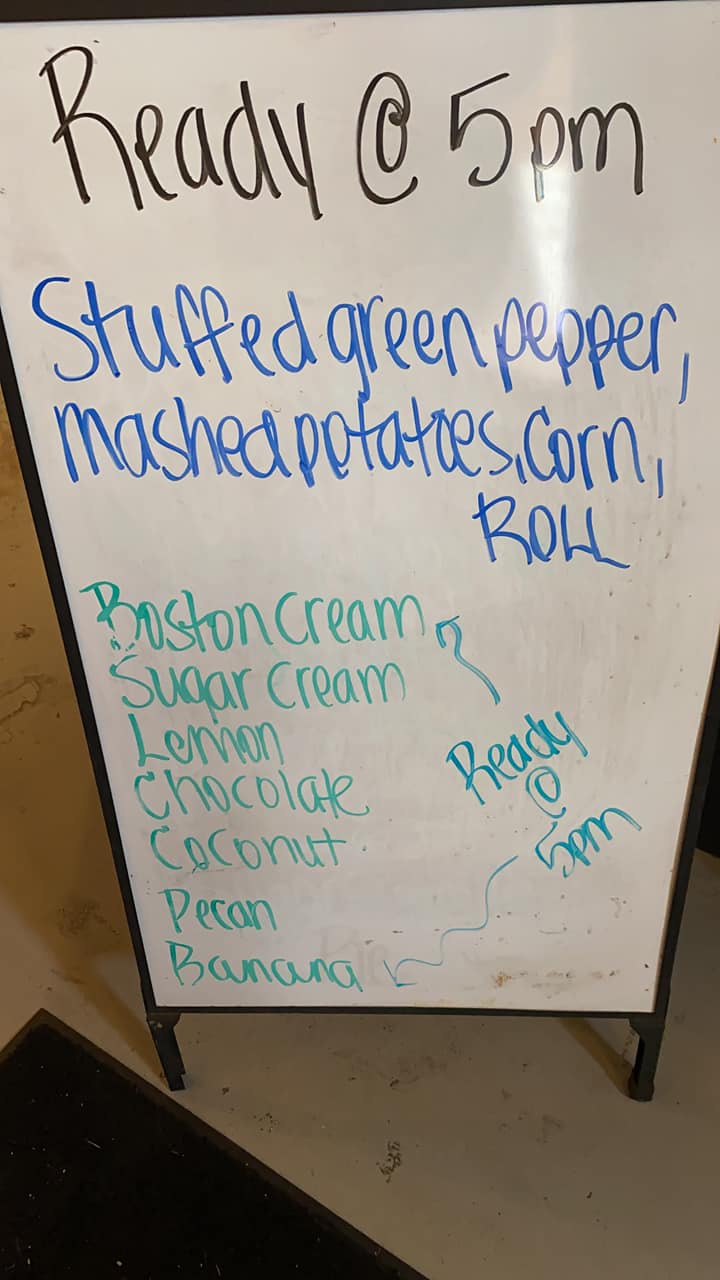 Ready @ 5pm
Stuffed green pepper,
mashed potatoes, Corn,
ROLL
Boston Cream
Sugar Cream
Lemon
Chocolate
Coconut
Pecan
Banana
Ready
@
5pm